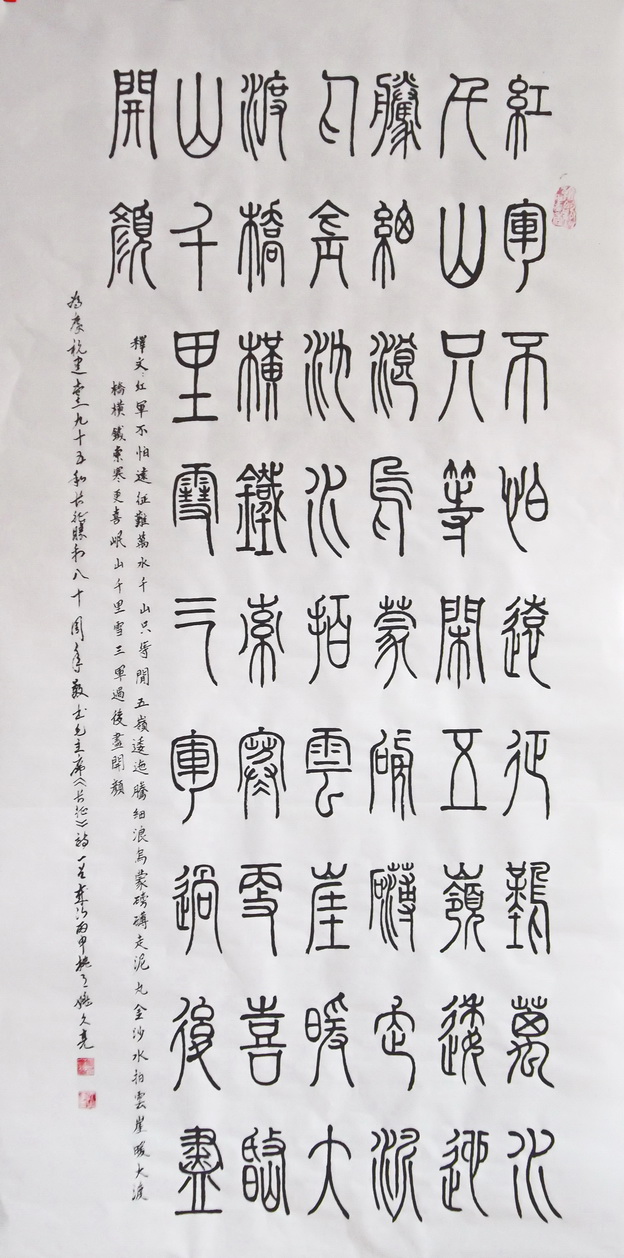 紅軍不怕遠征難萬水
千山只等閑五嶺逶迤
騰細浪烏蒙磅礴走泥
丸金沙水拍雲崖暖大
渡橋橫鐵索寒更喜岷
山千里雪三軍過後盡
開顏
釋文:紅軍不怕遠征難萬水千山只等閒五嶺逶迤騰細浪烏蒙磅礴走泥丸金沙水拍雲崖暖大渡
橋橫鐵索寒更喜岷山千里雪三軍過後盡開顏
為慶祝建党九十五和长征勝利八十周年敬书毛主席《长征》詩一首歲次丙申桃月久亮